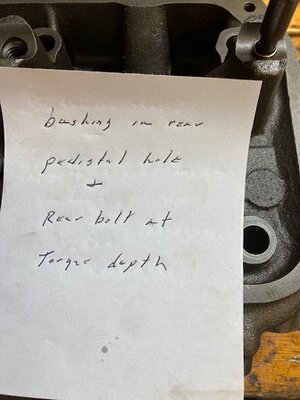 bushing in rear
pedistal hole
+
Rear bolt at
Torque depth